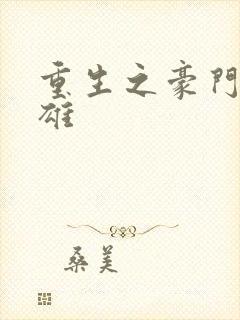 重生之豪門
雄
桑美